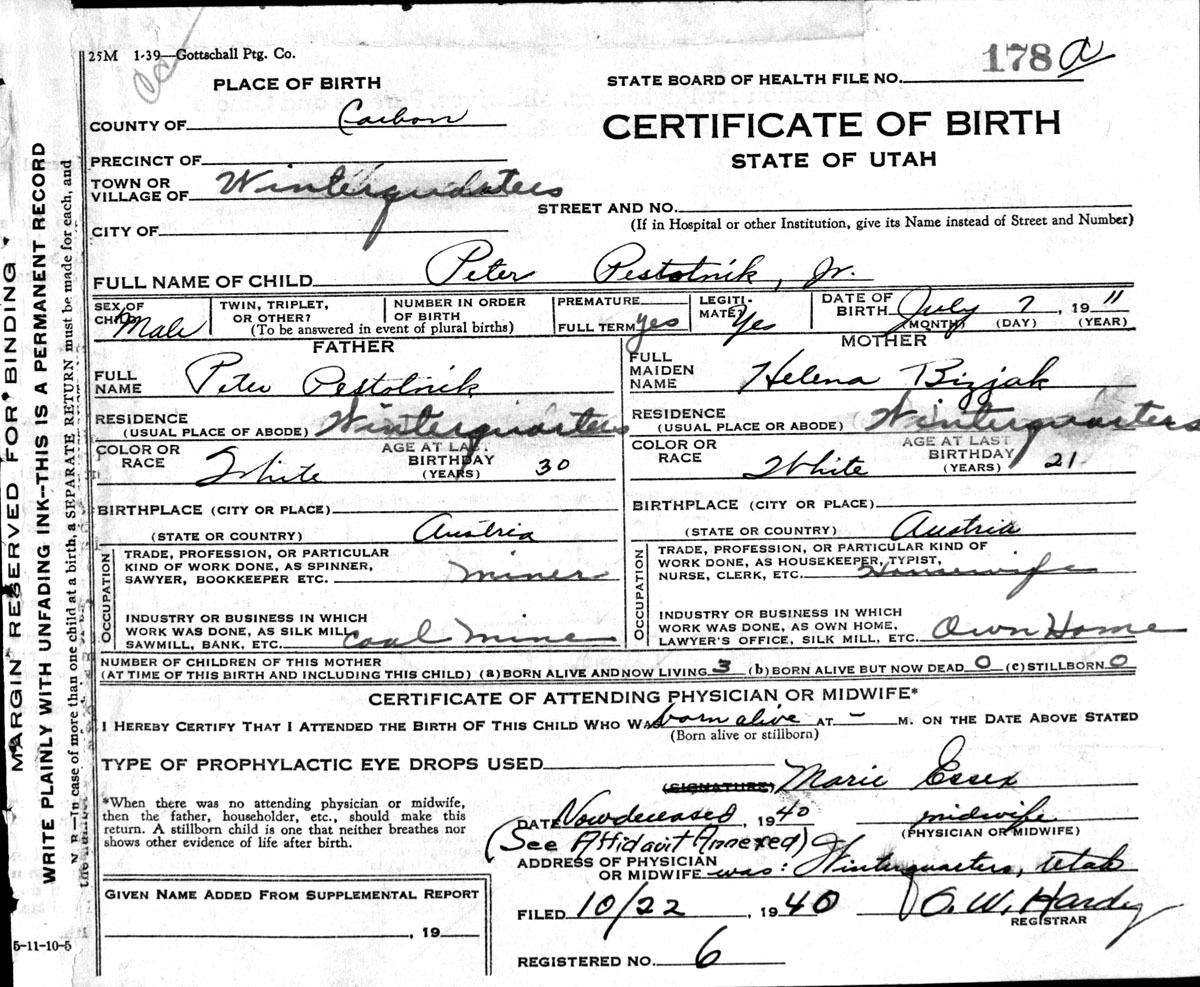 25M 1-39—Gottschall Ptg. Co.
178 a
PLACE OF BIRTH
STATE BOARD OF HEALTH FILE NO.
COUNTY OF Carbon
CERTIFICATE OF BIRTH
STATE OF UTAH
PRECINCT OF
TOWN OR VILLAGE OF Winterquarters
STREET AND NO.
(If in Hospital or other Institution, give its Name instead of Street and Number)
CITY OF
FULL NAME OF CHILD Peter Pestotnik, Jr.
SEX OF CHILD Male
TWIN, TRIPLET, OR OTHER?
NUMBER IN ORDER OF BIRTH
(To be answered in event of plural births)
PREMATURE
FULL TERM yes
LEGITIMATE? Yes
DATE OF BIRTH July 7, 1911
(MONTH) (DAY) (YEAR)
FATHER
FULL NAME Peter Pestotnik
RESIDENCE (USUAL PLACE OF ABODE) Winterquarters
COLOR OR RACE White
AGE AT LAST BIRTHDAY (YEARS) 30
BIRTHPLACE (CITY OR PLACE)
(STATE OR COUNTRY) Austria
OCCUPATION
TRADE, PROFESSION, OR PARTICULAR
KIND OF WORK DONE, AS SPINNER,
SAWYER, BOOKKEEPER ETC. miner
INDUSTRY OR BUSINESS IN WHICH
WORK WAS DONE, AS SILK MILL,
SAWMILL, BANK, ETC. Coal Mine
MOTHER
FULL MAIDEN NAME Helena Bizjak
RESIDENCE (USUAL PLACE OR ABODE) Winterquarters
COLOR OR RACE White
AGE AT LAST BIRTHDAY (YEARS) 21
BIRTHPLACE (CITY OR PLACE)
(STATE OR COUNTRY) Austria
OCCUPATION
TRADE, PROFESSION, OR PARTICULAR KIND OF
WORK DONE, AS HOUSEKEEPER, TYPIST,
NURSE, CLERK, ETC. Housewife
INDUSTRY OR BUSINESS IN WHICH
WORK WAS DONE, AS OWN HOME,
LAWYER'S OFFICE, SILK MILL, ETC. Own Home
NUMBER OF CHILDREN OF THIS MOTHER
(AT TIME OF THIS BIRTH AND INCLUDING THIS CHILD) (a) BORN ALIVE AND NOW LIVING 3 (b) BORN ALIVE BUT NOW DEAD 0 (c) STILLBORN 0
CERTIFICATE OF ATTENDING PHYSICIAN OR MIDWIFE*
I HEREBY CERTIFY THAT I ATTENDED THE BIRTH OF THIS CHILD WHO WAS born alive AT - M. ON THE DATE ABOVE STATED
(Born alive or stillborn)
TYPE OF PROPHYLACTIC EYE DROPS USED
(SIGNATURE) Marie Essex
*When there was no attending physician or midwife,
then the father, householder, etc., should make this
return. A stillborn child is one that neither breathes nor
shows other evidence of life after birth.
DATE Now deceased, 1940
midwife
(PHYSICIAN OR MIDWIFE)
(See Affidavit Annexed)
ADDRESS OF PHYSICIAN OR MIDWIFE was: Winterquarters, Utah
GIVEN NAME ADDED FROM SUPPLEMENTAL REPORT
, 19
FILED 10/22, 1940
O. W. Hardy
REGISTRAR
REGISTERED NO. 6
5-11-10-5
MARGIN RESERVED FOR BINDING
WRITE PLAINLY WITH UNFADING INK—THIS IS A PERMANENT RECORD
N. B.—In case of more than one child at a birth, a SEPARATE RETURN must be made for each, and